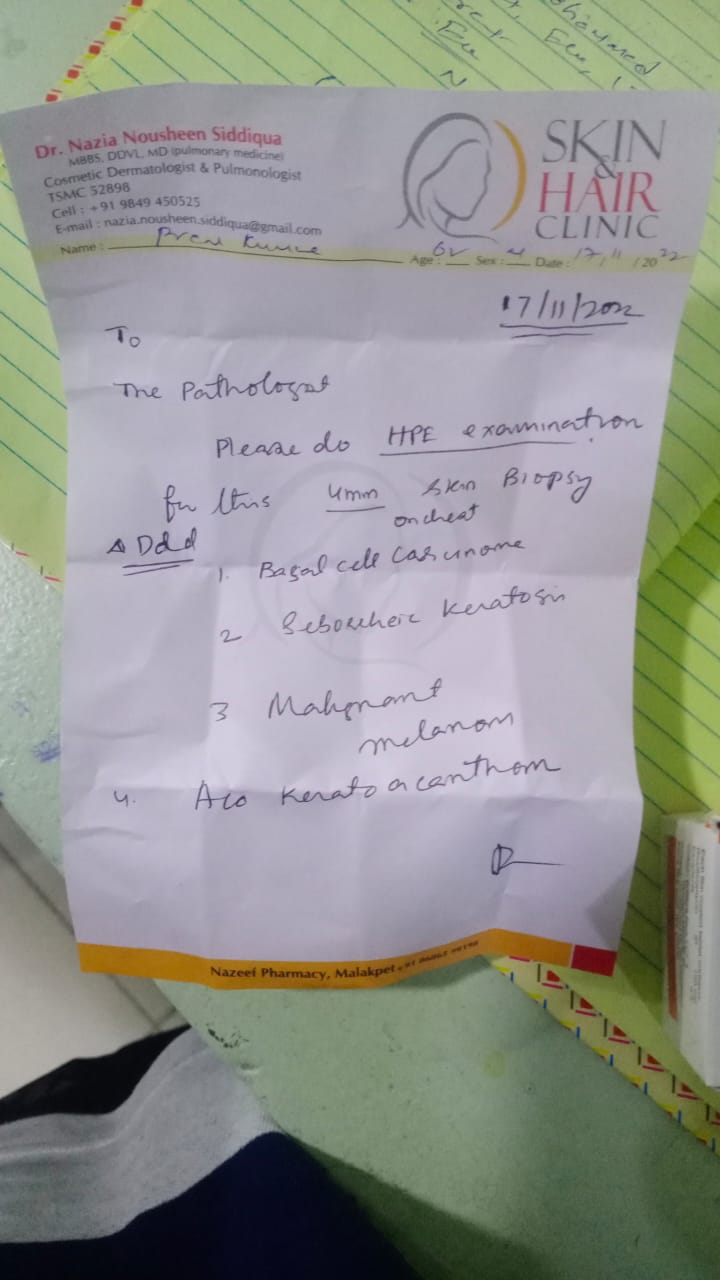 Dr. Nazia Nousheen Siddiqua
MBBS, DDVL, MD (pulmonary medicine)
Cosmetic Dermatologist & Pulmonologist
TSMC 52898
Cell : +91 9849 450525
E-mail : nazia.nousheen.siddiqua@gmail.com
SKIN
&
HAIR
CLINIC
Name :
Age : Sex : Date : 17/11/2022
17/11/2022
To
The Pathologist
Please do HPE examination
for this 4mm Skin Biopsy
on cheat
Δ Ddd
1. Basal cell Carcinoma
2 Seborrheic Keratosis
3 Malignant
melanom
4. Keratoacanthom
Nazeef Pharmacy, Malakpet